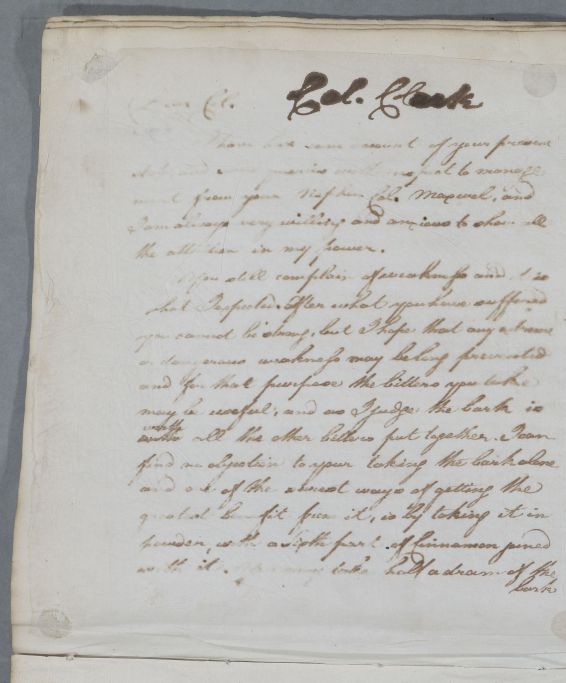 Dear Col. Col. Clerk
I have had some account of your present
state and some queries with respect to manage
ment from your Nephew Col. Maxwel, and
I am always very willing and anxious to show all
the attention in my power.
You still complain of weakness and it is
what I expected. After what you have suffered
you cannot be strong, but I hope that any extreme
or dangerous weakness may be long prevented
and for that purpose the bitters you take
may be useful; and as I judge the bark is
worth all the other bitters put together I can
find no objection to your taking the bark alone
and one of the surest ways of getting the
greatest benefit from it, is by taking it in
powder, with a sixth part of Cinnamon joined
with it. You may take half a dram of the
bark